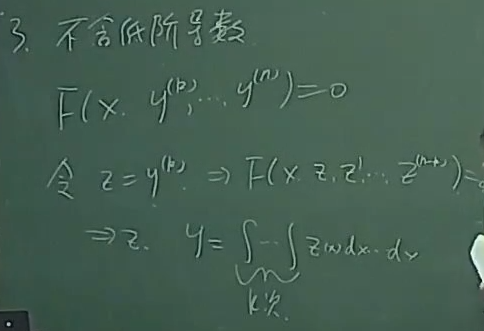 3. 不含低阶导数
F(x, y^{(k)}, ⋯, y^{(n)})=0
令 z=y^{(k)} ⇒ F(x, z, z', ⋯, z^{(n-k)})=0
⇒z. y=∫⋯∫ z(x)dx⋯dx
k次